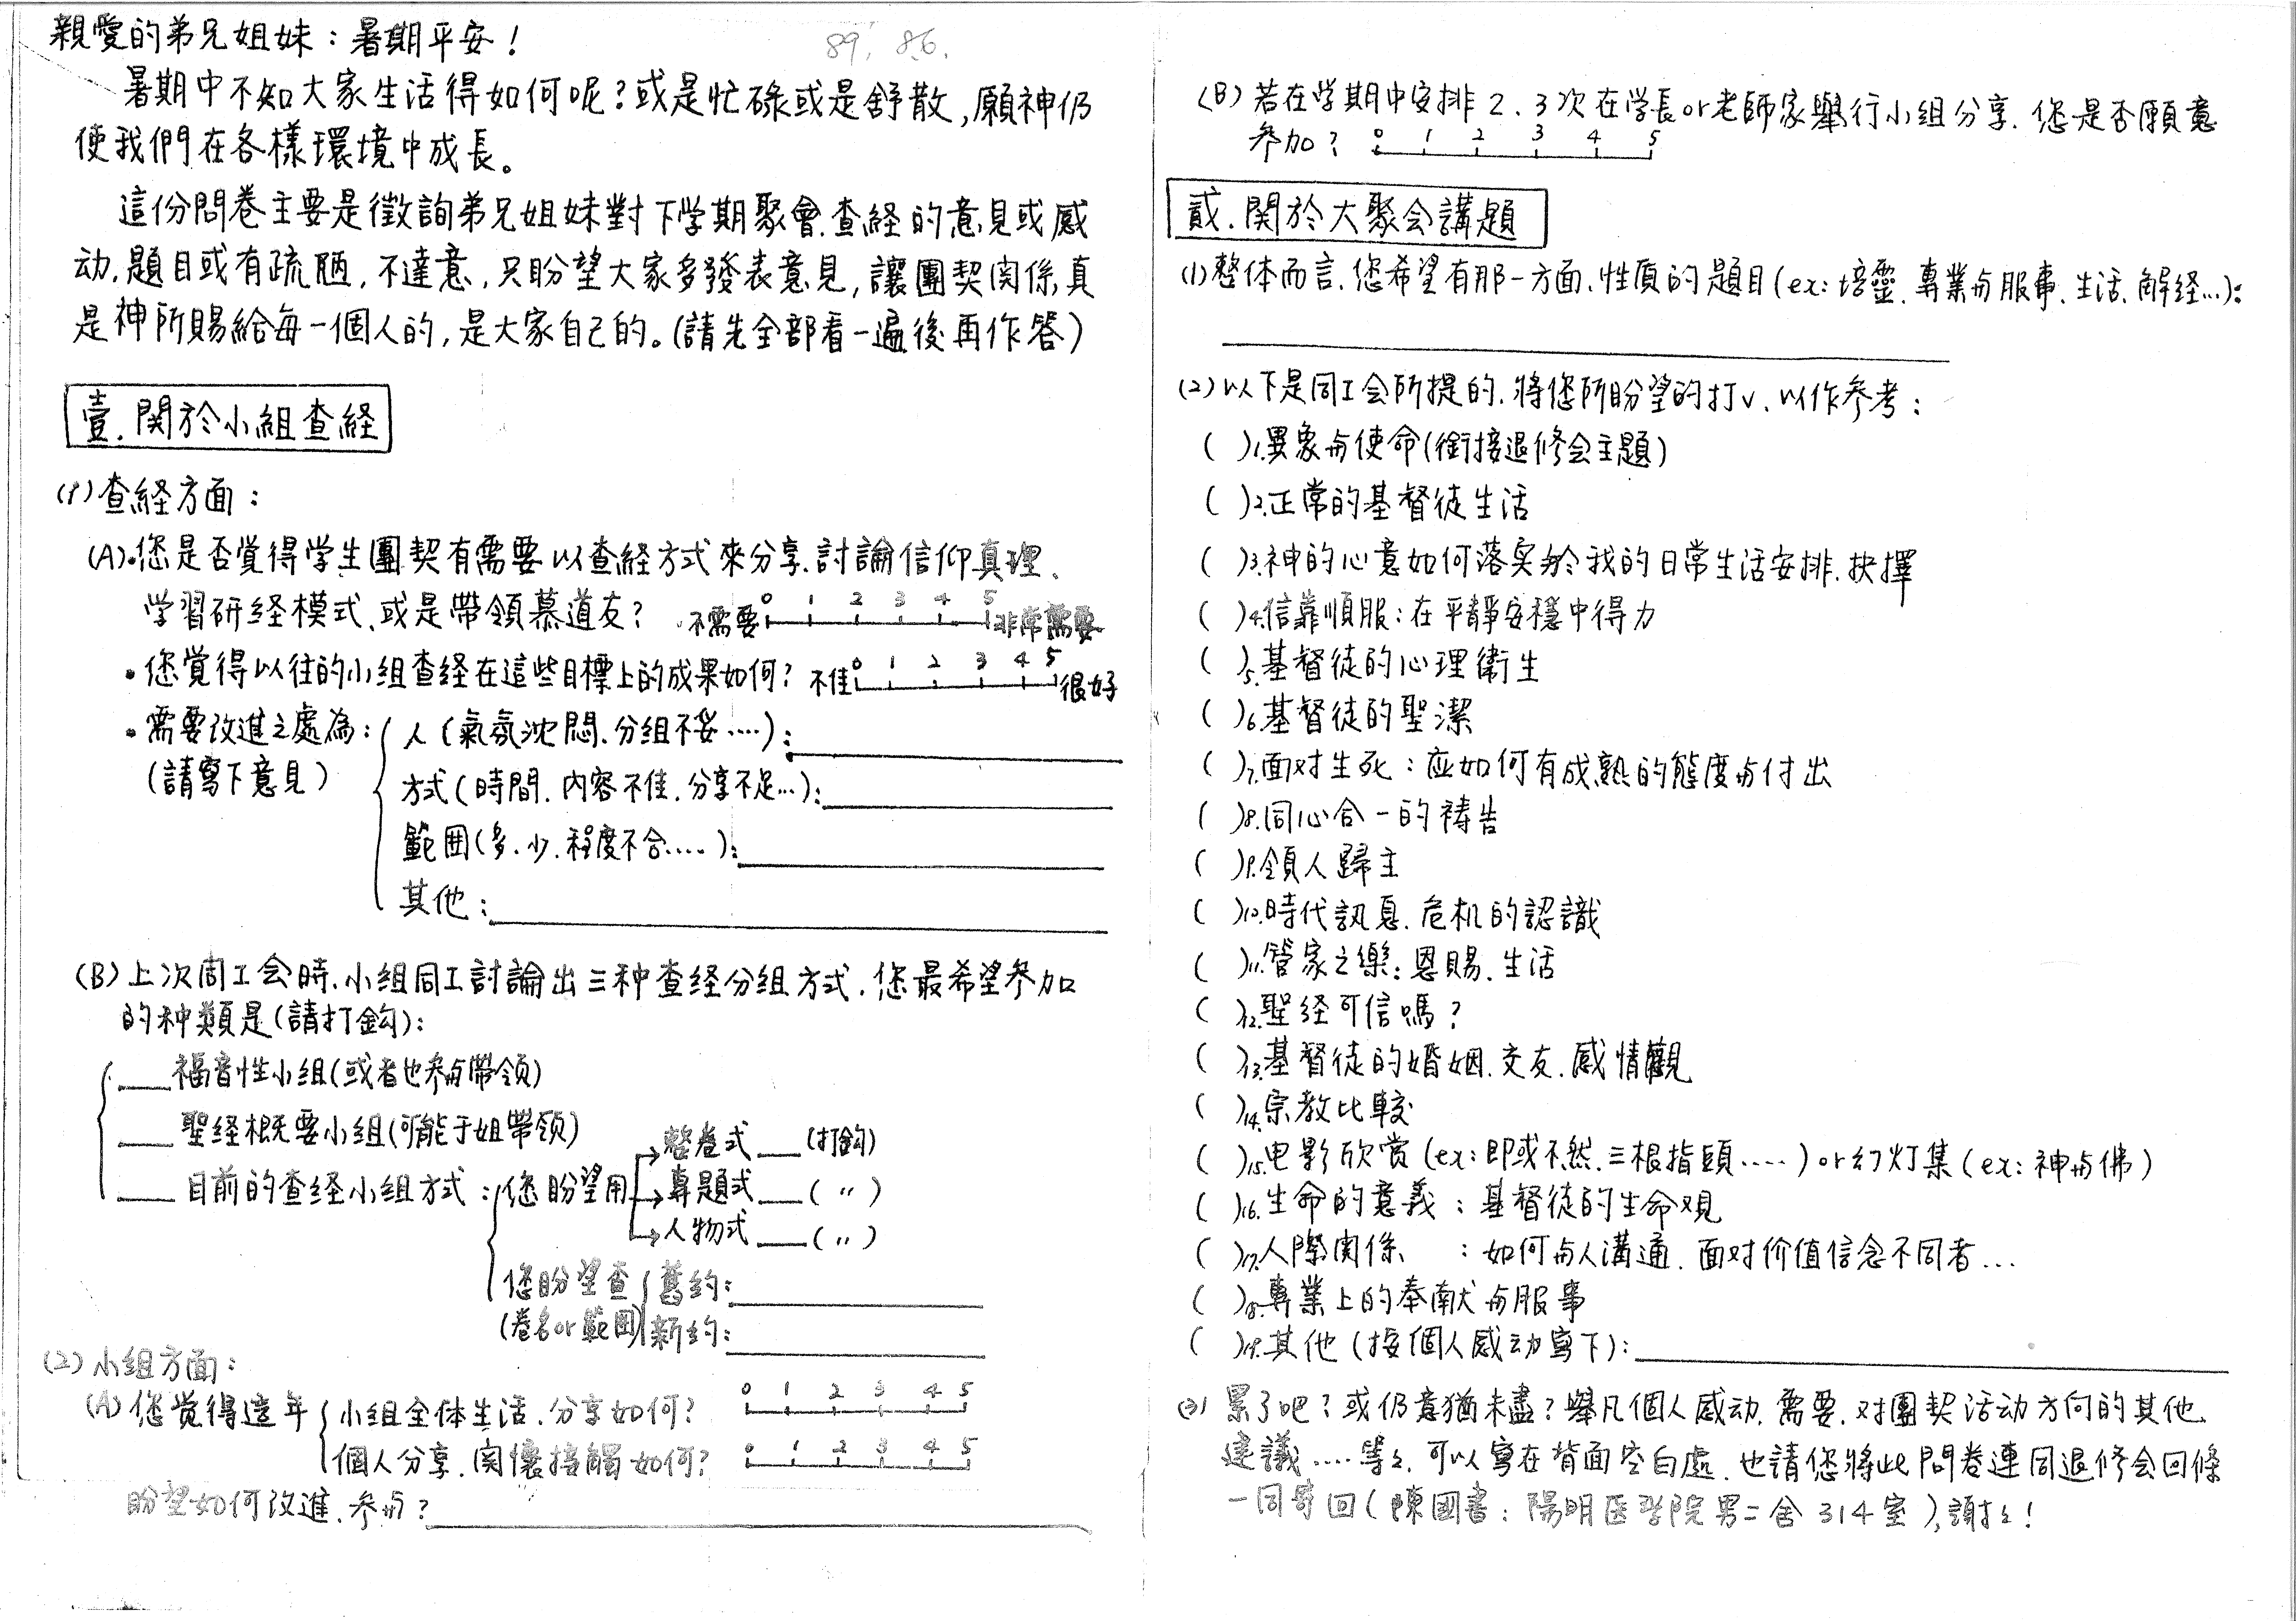 親愛的弟兄姐妹：暑期平安！
89, 8.6.
暑期中不知大家生活得如何呢？或是忙碌或是舒散，願神仍
使我們在各樣環境中成長。
這份問卷主要是徵詢弟兄姐妹對下学期聚會、查経的意見或感
动，題目或有疏陋，不達意，只盼望大家多發表意見，讓團契関係真
是神所賜給每一個人的，是大家自己的。（請先全部看一遍後再作答）
壹．関於小組查経
(1)查経方面：
(A)•您是否覺得学生團契有需要以查経方式來分享、討論信仰真理、
学習研経模式、或是帶領慕道友？ 不需要 0 1 2 3 4 5 非常需要
•您覺得以往的小組查経在這些目標上的成果如何？ 不佳 0 1 2 3 4 5 很好
•需要改進之處為：人（氣氛沈悶、分組不妥····）：
（請寫下意見） 方式（時間、內容不佳、分享不足…）：
範囲（多、少、程度不合····）：
其他：
(B)上次同工会時，小組同工討論出三种查経分組方式，您最希望参加
的种類是（請打鈎）：
福音性小組（或者也参与帶領）
聖経概要小組（可能于姐帶領）
目前的查経小組方式：您盼望用
整卷式 (打鈎)
專題式 ( 〃 )
人物式 ( 〃 )
您盼望查 舊約：
(卷名or範囲) 新約：
(2)小組方面：
(A)您覚得這年 小組全体生活、分享如何？ 0 1 2 3 4 5
個人分享、関懷接觸如何？ 0 1 2 3 4 5
盼望如何改進、参与？
(B)若在学期中安排2、3次在学長or老師家舉行小組分享，您是否願意
参加？ 0 1 2 3 4 5
貳．関於大聚会講題
(1)整体而言，您希望有那一方面、性质的題目(ex：培靈、專業与服事、生活、解経…)：
(2)以下是同工会所提的，將您所盼望的打v，以作參考：
( )1.異象与使命(銜接退修会主題)
( )2.正常的基督徒生活
( )3.神的心意如何落实於我的日常生活安排、抉擇
( )4.信靠順服：在平靜安穩中得力
( )5.基督徒的心理衛生
( )6.基督徒的聖潔
( )7.面对生死：应如何有成熟的態度与付出
( )8.同心合一的禱告
( )9.領人歸主
( )10.時代訊息、危机的認識
( )11.管家之樂：恩賜、生活
( )12.聖経可信嗎？
( )13.基督徒的婚姻、交友、感情觀
( )14.宗教比較
( )15.电影欣赏(ex：即或不然、三根指頭····)or幻灯集(ex：神与佛)
( )16.生命的意義：基督徒的生命观
( )17.人際関係 ：如何与人溝通、面对价值信念不同者…
( )18.專業上的奉献与服事
( )19.其他（按個人感动寫下）：
(3) 累了吧？或仍意猶未盡？舉凡個人感动、需要、对團契活动方向的其他
建議····等々，可以寫在背面空白處，也請您將此問卷連同退修会回條
一同寄回（陳國書：陽明医学院男二舍314室），謝々！